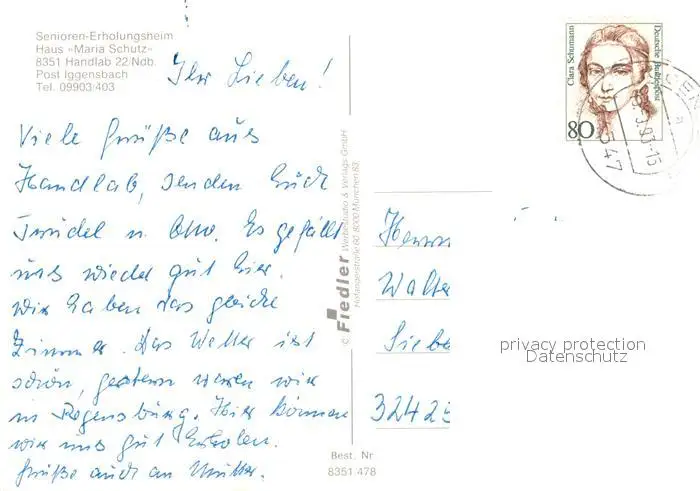 Senioren-Erholungsheim
Haus »Maria Schutz«
8351 Handlab 22/Ndb.
Post Iggensbach
Tel. 09903/403
Ihr Lieben!
Viele Grüße aus
Handlab, senden Euch
Trudel u. Otto. Es gefällt
uns wieder gut hier.
Wir haben das gleiche
Zimmer. Das Wetter ist
schön, gestern waren wir
in Regensburg. Hier können
wir uns gut erholen.
Grüße auch an Mutter.
© Fiedler Werbestudio & Verlags-GmbH
8000 München 83
Best. Nr
8351 478
Clara Schumann
Deutsche Bundespost
80
Herrn
Walte
Siebe
32425
privacy protection
Datenschutz